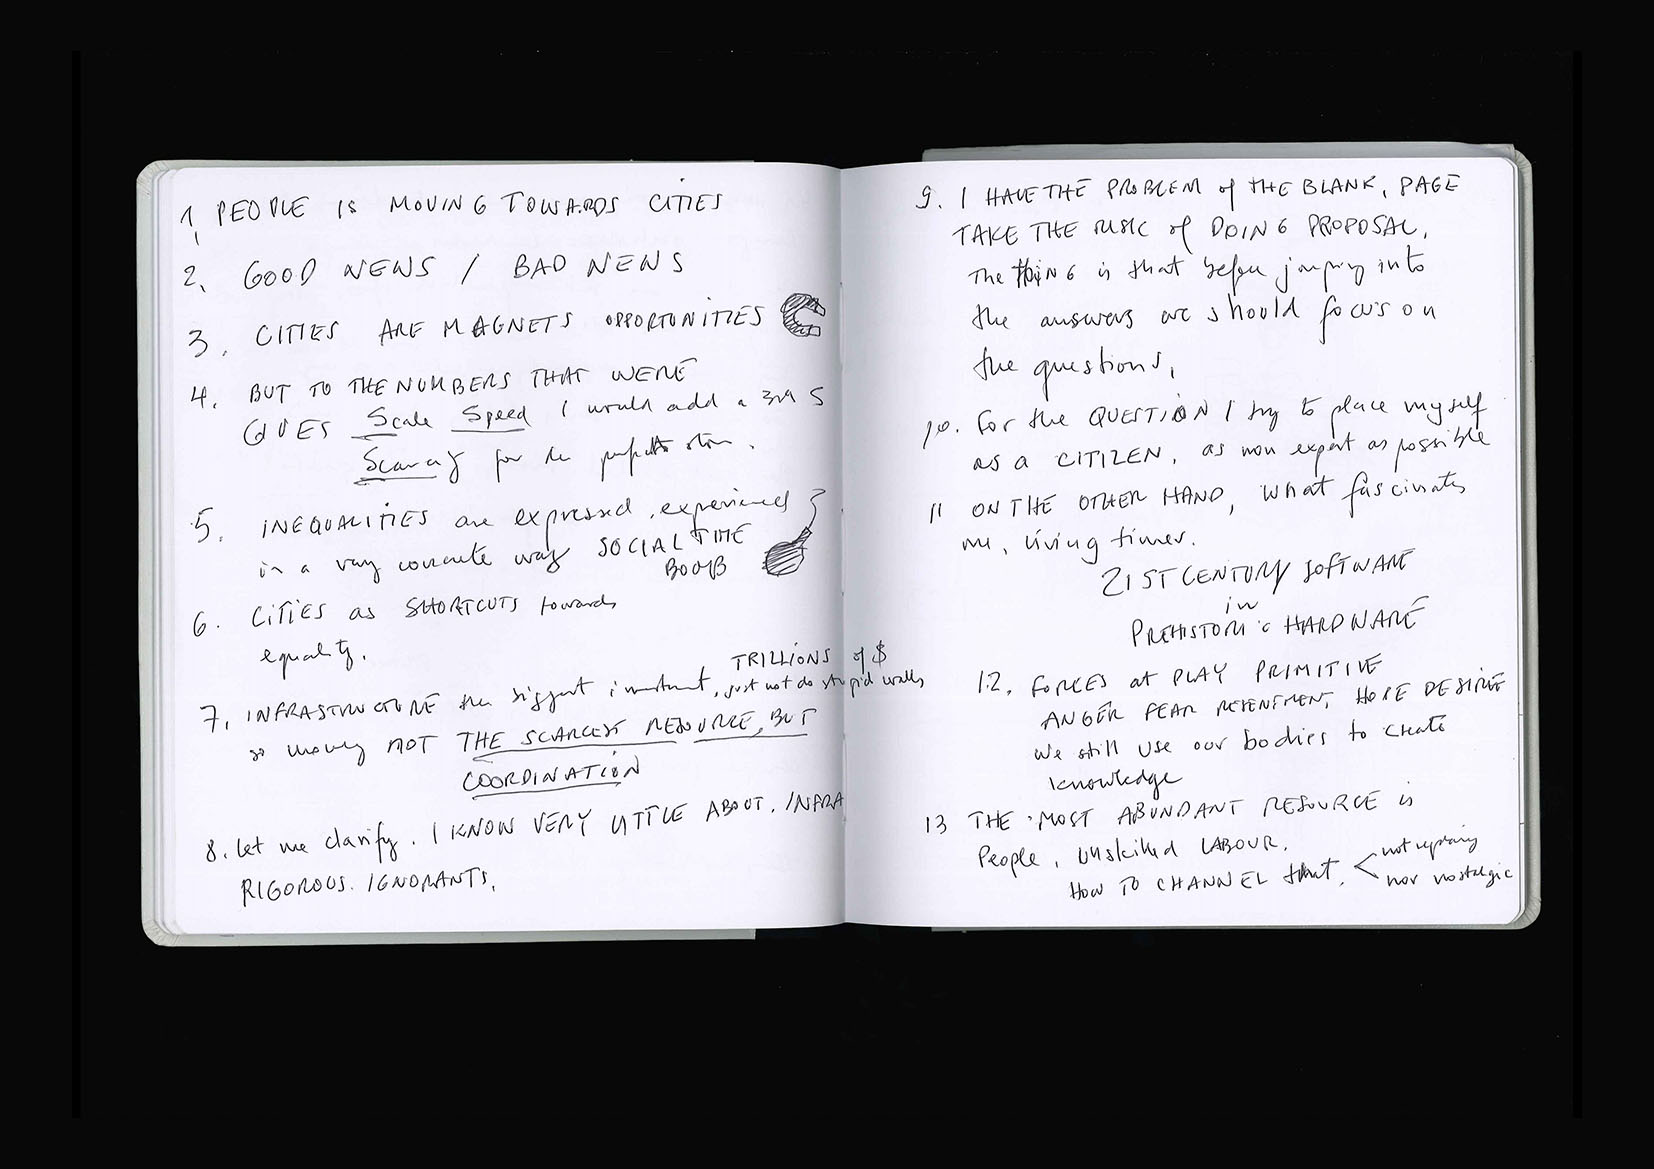 1, PEOPLE IS MOVING TOWARDS CITIES
2, GOOD NEWS / BAD NEWS
3. CITIES ARE MAGNETS OPPORTUNITIES
4. BUT TO THE NUMBERS THAT WERE
GIVES Scale Speed I would add a 3rd S
Scarcity for the perfect storm.
5. INEQUALITIES are expressed, experienced
in a very concrete way SOCIAL TIME
BOMB
6. CITIES as SHORTCUTS towards
equality.
TRILLIONS of $
7, INFRASTRUCTURE the biggest investment, just not do stupid walls
so money NOT THE SCARCEST RESOURCE, BUT
COORDINATION
8. Let me clarify. I KNOW VERY LITTLE ABOUT. INFRA
RIGOROUS. IGNORANTS,
9. I HAVE THE PROBLEM of THE BLANK, PAGE
TAKE THE RISK of DOING PROPOSAL,
The THING is that before jumping into
the answers we should focus on
the questions,
10. For the QUESTION I try to place myself
as a CITIZEN, as non expert as possible
11 ON THE OTHER HAND, what fascinates
me, living times.
21ST CENTURY SOFTWARE
in
PREHISTORIC HARDWARE
12. FORCES at PLAY PRIMITIVE
ANGER FEAR RESENTMENT, HOPE DESIRE
We still use our bodies to create
knowledge
13 THE MOST ABUNDANT RESOURCE is
People, Unskilled LABOUR.
HOW TO CHANNEL that. < not
nor nostalgic